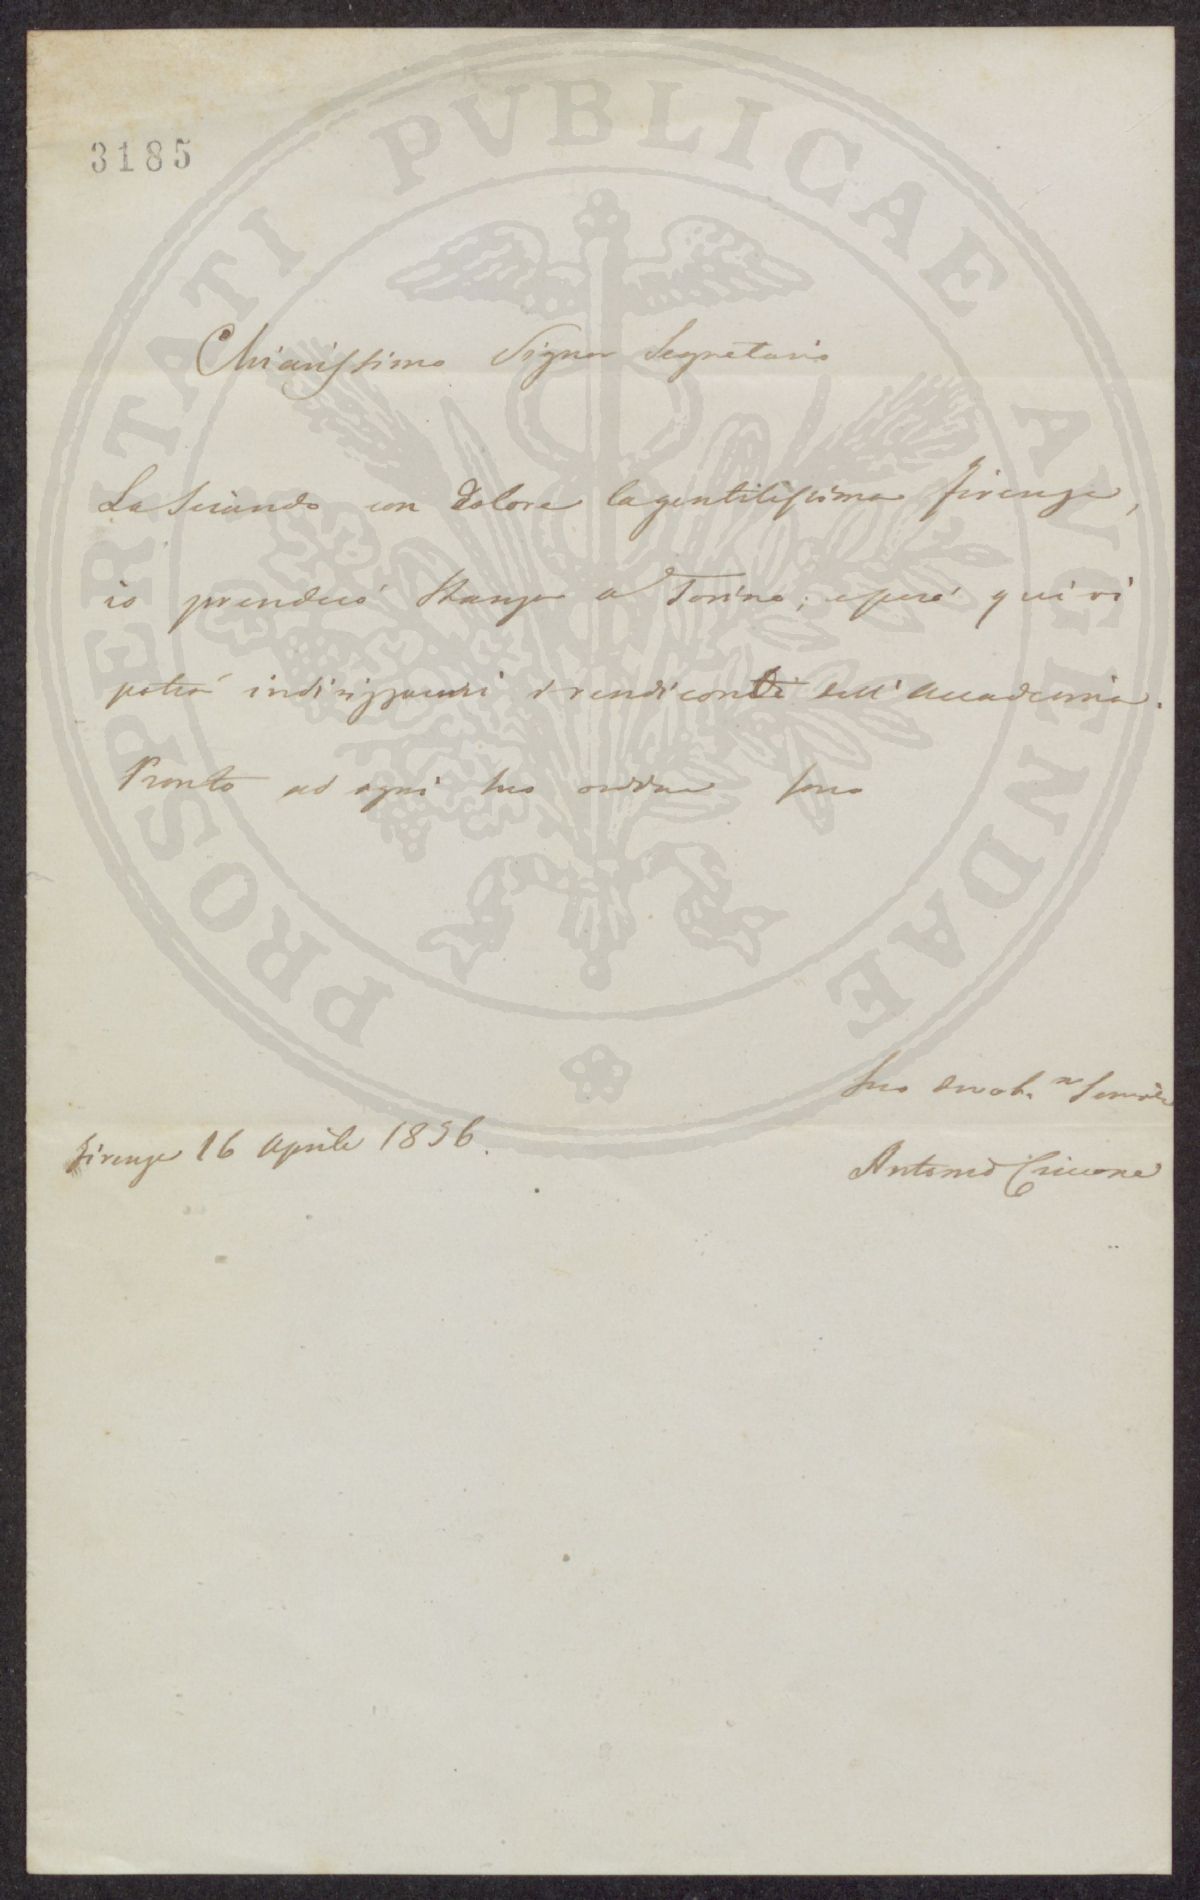 3185
PROSPERITATI PVBLICAE AVGENDAE
Chiarissimo Signor Segretario
Lasciando con dolore la gentilissima Firenze,
io prenderò stanza a Torino; e però quivi
potrà indirizzarmi i rendiconti dell'Accademia.
Pronto ad ogni suo ordine sono
Suo devot. Servitore
Firenze 16 Aprile 1856.
Antonio Ciccone